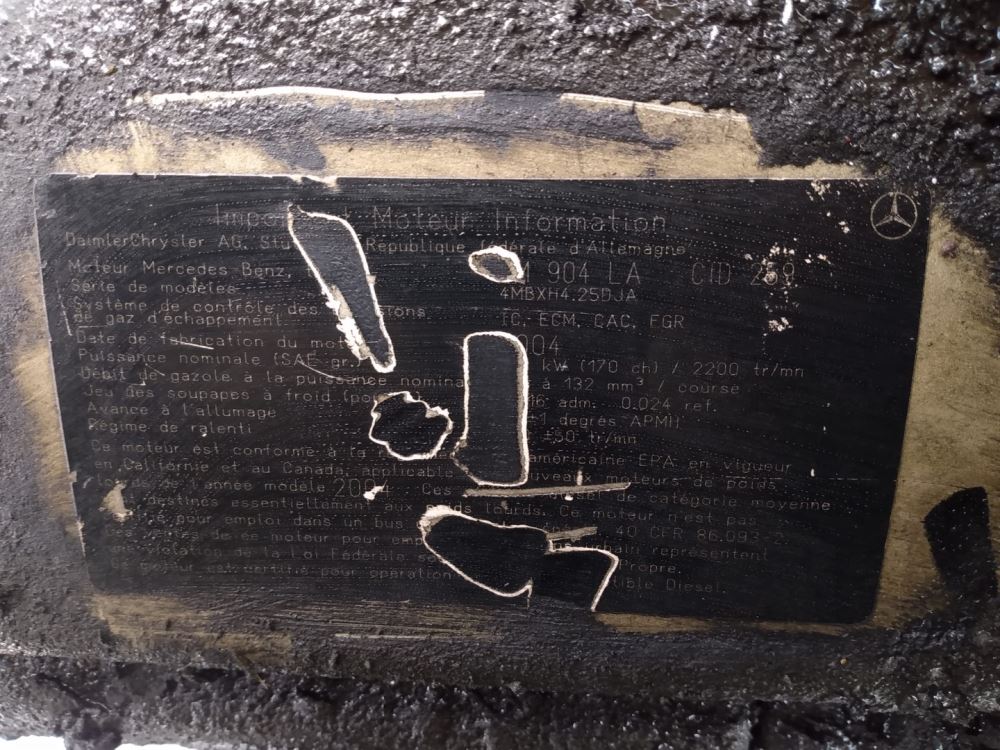 Impo Moteur Information
DaimlerChrysler AG, Stu République fédérale d'Allemagne
Moteur Mercedes Benz, 904 LA CID 259
Série de modèles 4MBXH4.25DJA
Système de contrôle des sions
de gaz d'échappement TC, ECM, CAC, EGR
Date de fabrication du mot 004
Puissance nominale (SAE gr.) kW (170 ch) / 2200 tr/mn
Débit de gazole à la puissance nomina à 132 mm³ / course
Jeu des soupapes à froid (po 16 adm. 0.024 ref.
Avance à l'allumage ±1 degrés APMH
Régime de ralenti ±50 tr/mn
Ce moteur est conforme à américaine EPA en vigueur
en Californie et au Canada, applicable uveaux moteurs de poids
lourds de l'année modèle 2004. Ces diesel de catégorie moyenne
destinés essentiellement aux ids lourds. Ce moteur n'est pas
pour emploi dans un bus 40 CFR 86.093-2.
de ce moteur pour emp bain représentent
violation de la Loi Fédérale s propre.
Ce moteur est certifié pour opération tible Diesel.